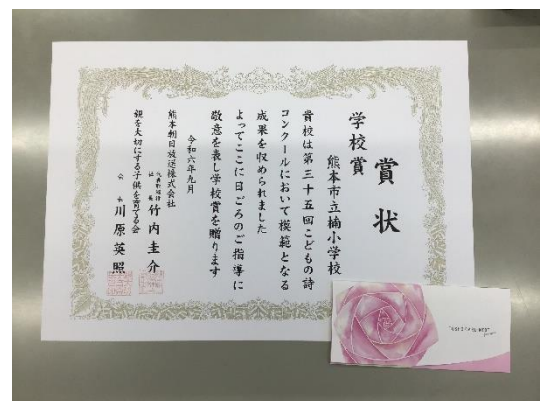 賞状
学校賞
熊本市立楠小学校
貴校は第三十五回こどもの詩
コンクールにおいて模範となる
成果を収められました
よってここに日ごろのご指導に
敬意を表し学校賞を贈ります
令和六年九月
熊本朝日放送株式会社
代表取締役社長 竹内圭介
親を大切にする子供を育てる会
会長 川原英照